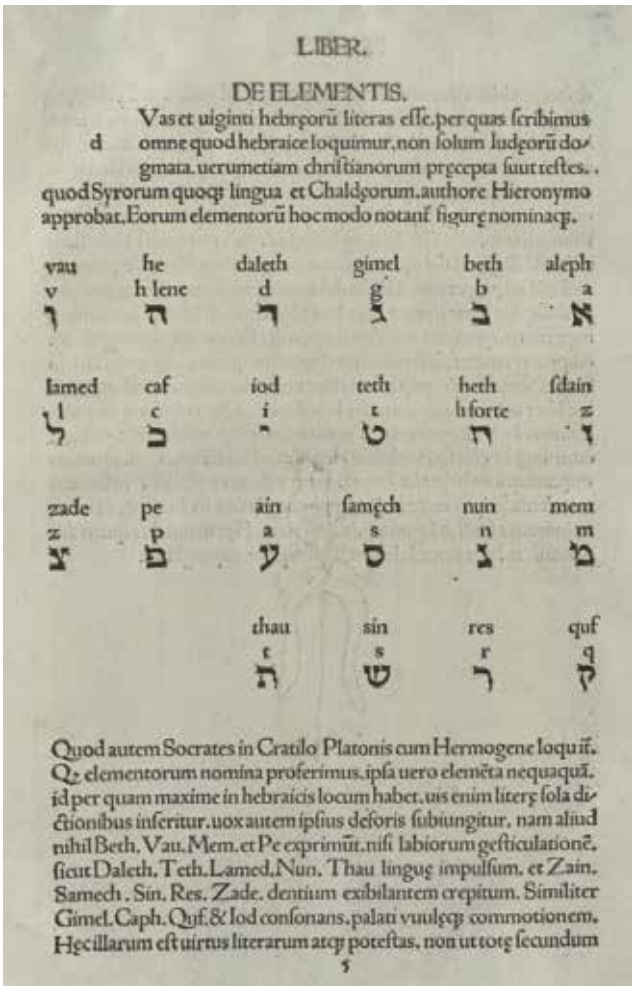 LIBER.
DE ELEMENTIS.
Vas et uiginti hebręorũ literas esse.per quas scribimus
d omne quod hebraice loquimur.non solum Iudęorũ do⸗
gmata.uerumetiam christianorum pręcepta suut testes..
quod Syrorum quoqꝫ lingua et Chaldęorum.authore Hieronymo
approbat.Eorum elementorũ hoc modo notant̃ figurę nominaqꝫ.
vau he daleth gimel beth aleph
v h lene d g b a
ו ה ד ג ב א
lamed caf iod teth heth sdain
l c i t h forte z
ל כ י ט ח ז
zade pe ain samęch nun mem
z p a s n m
צ פ ע ס נ מ
thau sin res quf
t s r q
ת ש ר ק
Quod autem Socrates in Cratilo Platonis cum Hermogene loqu it̃.
Qꝫ elementorum nomina proferimus.ipsa uero elemẽta nequaquã.
id per quam maxime in hebraicis locum habet.uis enim literę sola di⸗
ctionibus inseritur.uox autem ipsius deforis subiungitur. nam aliud
nihil Beth. Vau. Mem. et Pe exprimũt.nisi labiorum gesticulationẽ.
sicut Daleth. Teth.Lamed.Nun. Thau linguę impulsum. et Zain.
Samech. Sin. Res. Zade. dentium exibilantem crepitum. Similiter
Gimel.Caph.Quf.& Iod consonans.palati vuulęqꝫ commotionem.
Hęc illarum est uirtus literarum atqꝫ potestas, non ut totę secundum
5